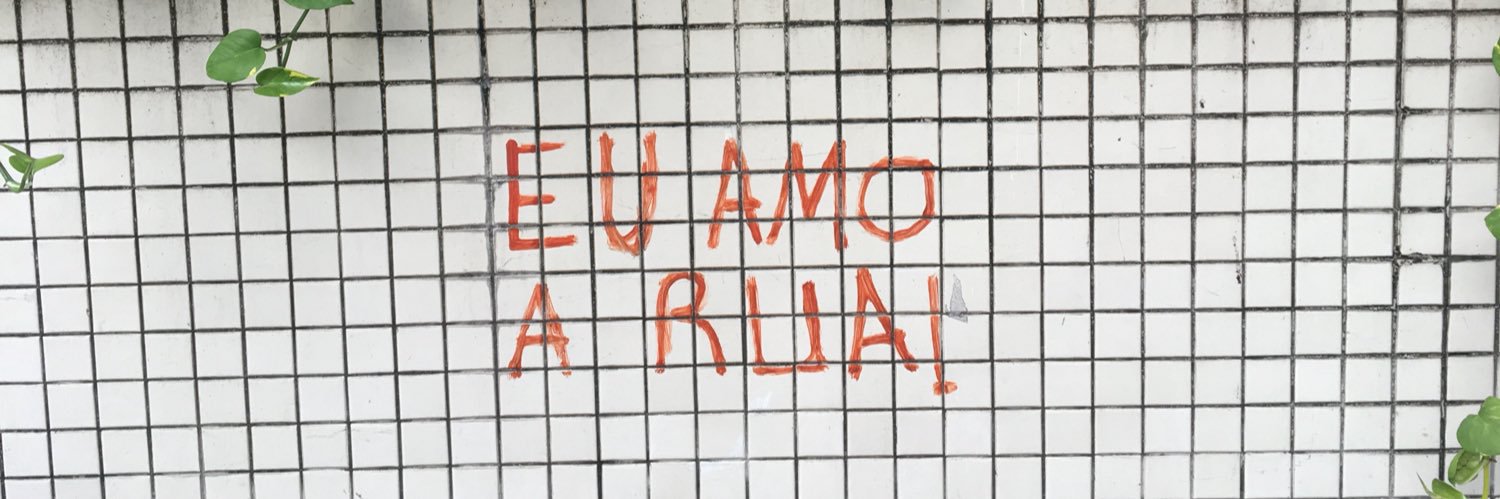 EU AMO
A RUA!